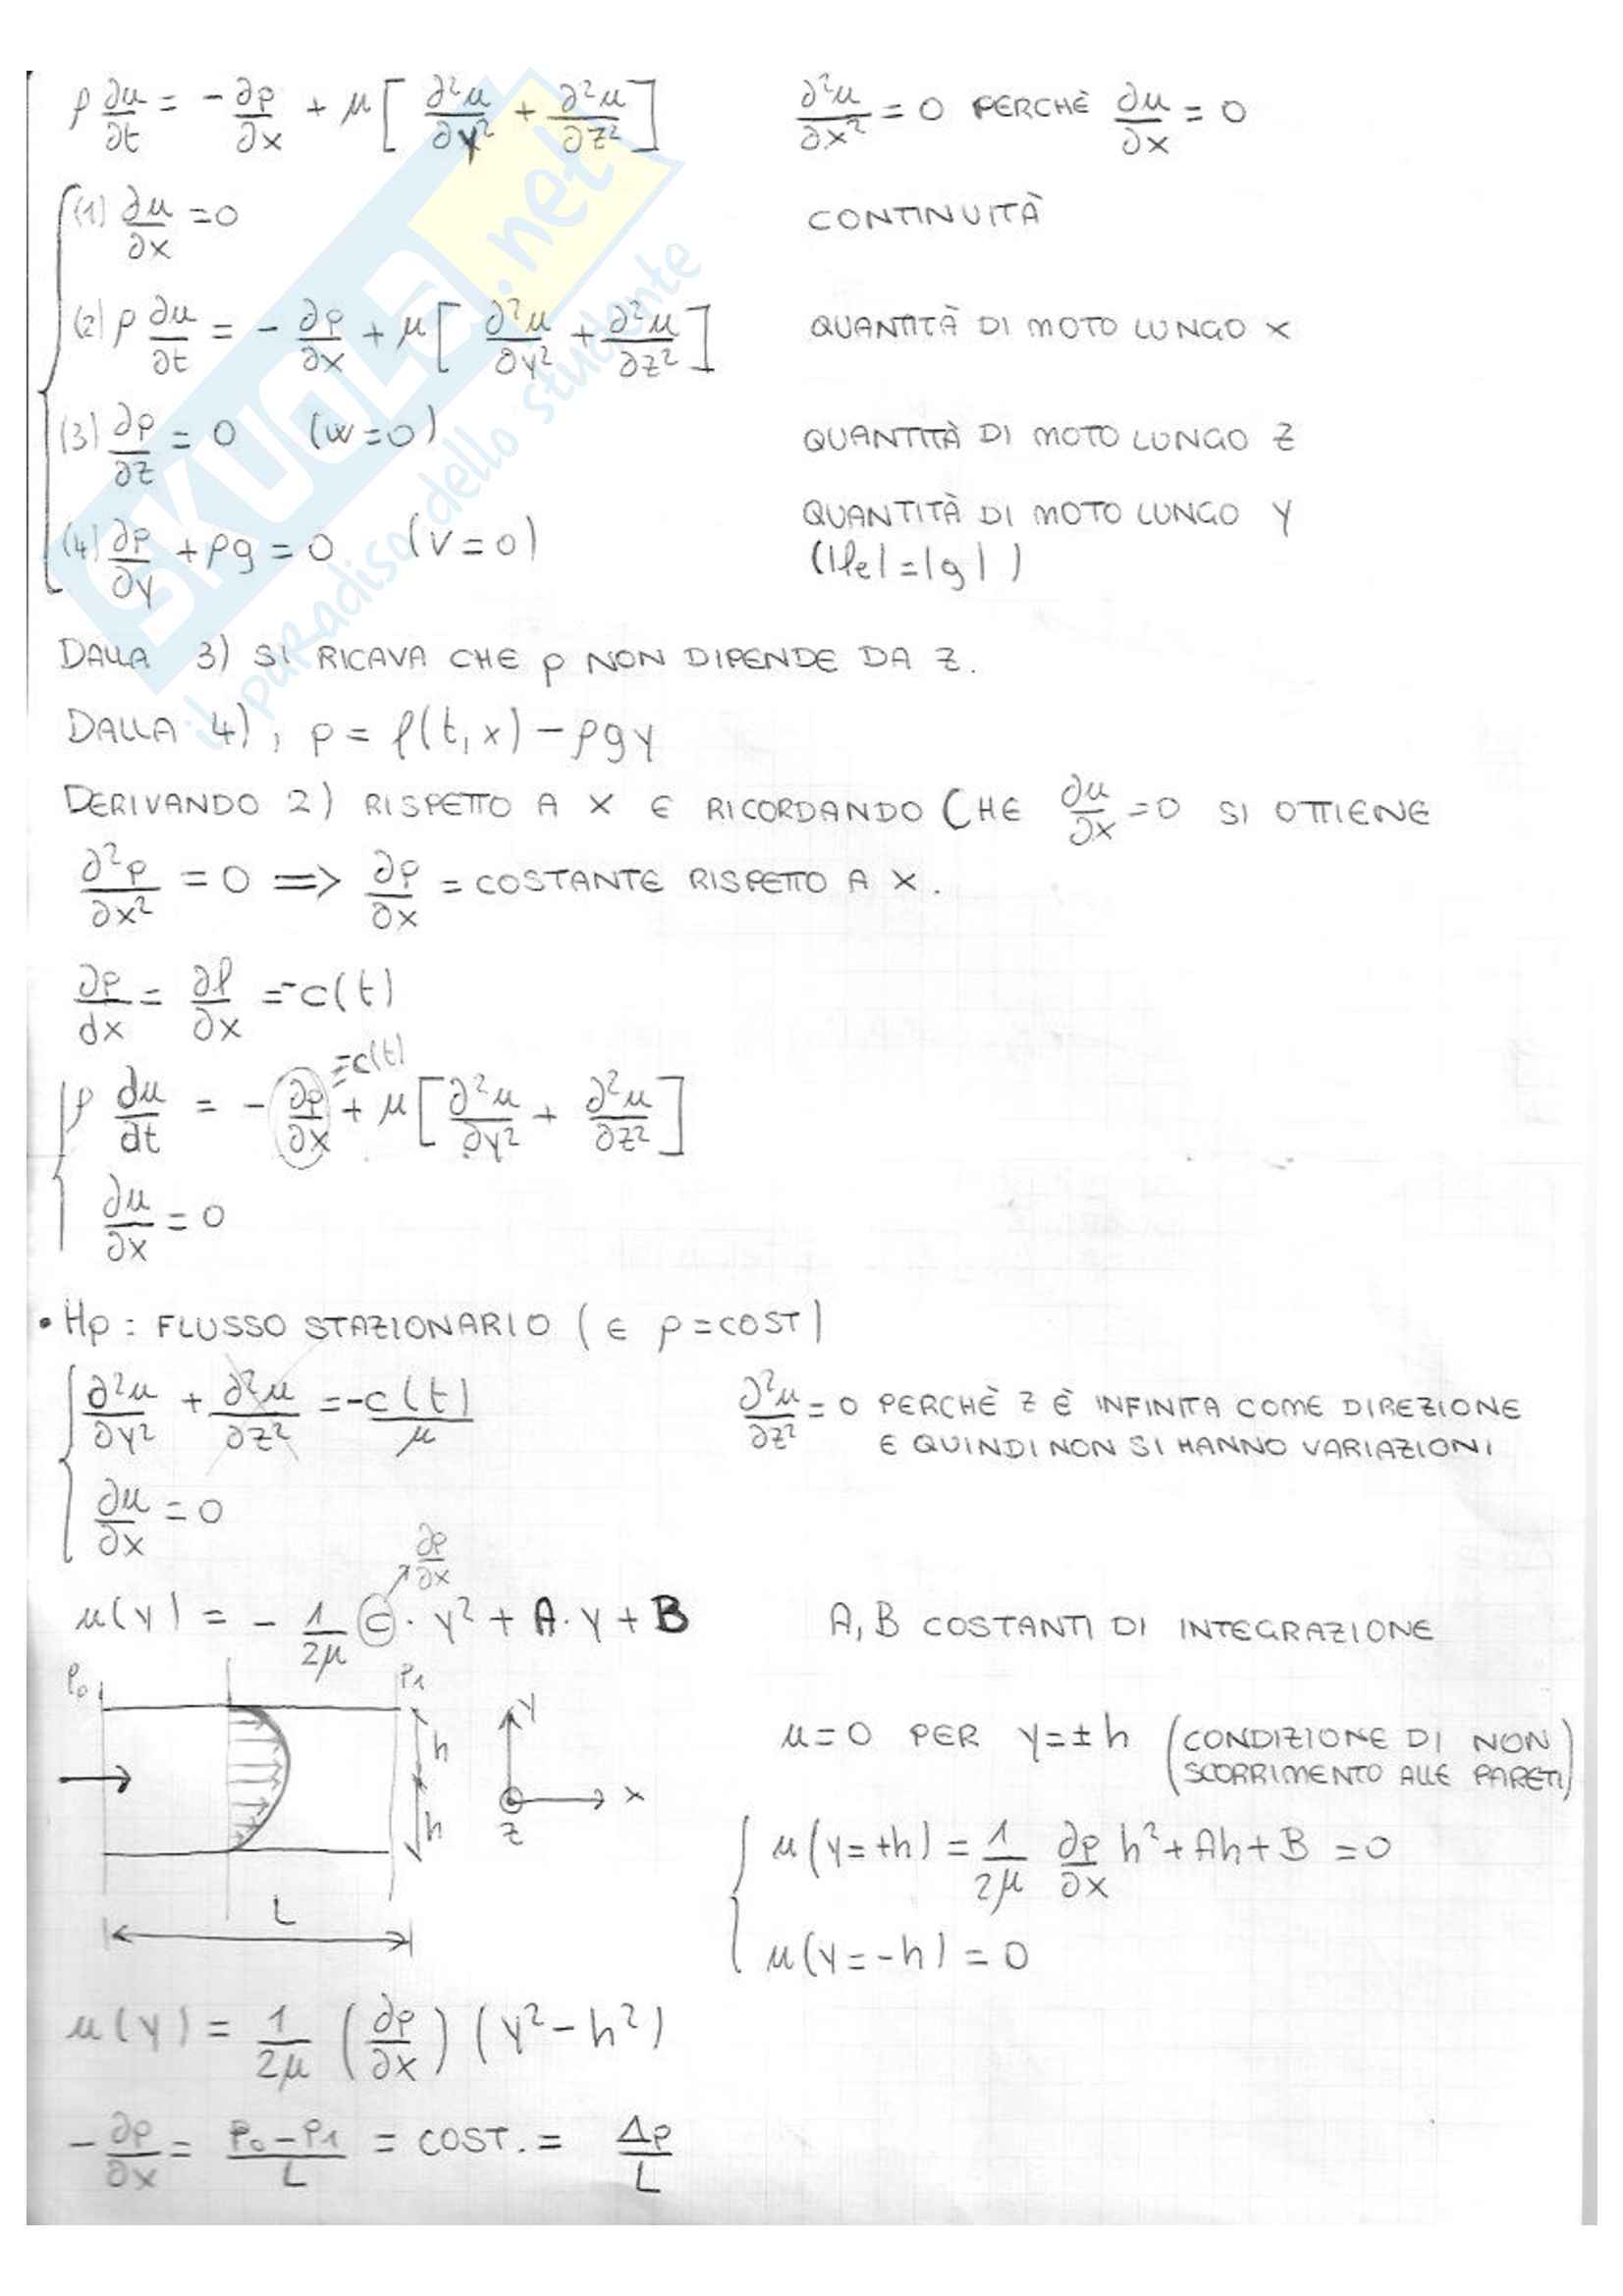 ρ ∂u/∂t = - ∂p/∂x + μ [ ∂²u/∂y² + ∂²u/∂z² ]    ∂²u/∂x² = 0 PERCHÈ ∂u/∂x = 0
(1) ∂u/∂x = 0    CONTINUITÀ
(2) ρ ∂u/∂t = - ∂p/∂x + μ [ ∂²u/∂y² + ∂²u/∂z² ]    QUANTITÀ DI MOTO LUNGO X
(3) ∂p/∂z = 0 (w=0)    QUANTITÀ DI MOTO LUNGO Z
(4) ∂p/∂y + ρg = 0 (v=0)    QUANTITÀ DI MOTO LUNGO Y
(|fe|=|g|)
SKUOLA.net
il paradiso dello studente
DALLA 3) SI RICAVA CHE p NON DIPENDE DA Z.
DALLA 4), p = f(t,x) - ρgy
DERIVANDO 2) RISPETTO A X E RICORDANDO CHE ∂u/∂x = 0 SI OTTIENE
∂²p/∂x² = 0 => ∂p/∂x = COSTANTE RISPETTO A X.
∂p/dx = ∂f/∂x = -c(t)
= c(t)
ρ du/dt = - ∂p/∂x + μ [ ∂²u/∂y² + ∂²u/∂z² ]
∂u/∂x = 0
• Hp: FLUSSO STAZIONARIO (E ρ=COST)
∂²u/∂y² + ∂²u/∂z² = -c(t)/μ    ∂²u/∂z² = 0 PERCHÈ Z È INFINITA COME DIREZIONE
E QUINDI NON SI HANNO VARIAZIONI
∂u/∂x = 0
∂p/∂x
u(y) = - 1/2μ c · y² + A·y + B    A, B COSTANTI DI INTEGRAZIONE
P₀ P₁
h
h
y
x
z
L
u=0 PER y=±h (CONDIZIONE DI NON
SCORRIMENTO ALLE PARETI)
u(y=+h) = 1/2μ ∂p/∂x h² + Ah + B = 0
u(y=-h) = 0
u(y) = 1/2μ (∂p/∂x) (y²-h²)
- ∂p/∂x = P₀-P₁/L = COST. = Δp/L